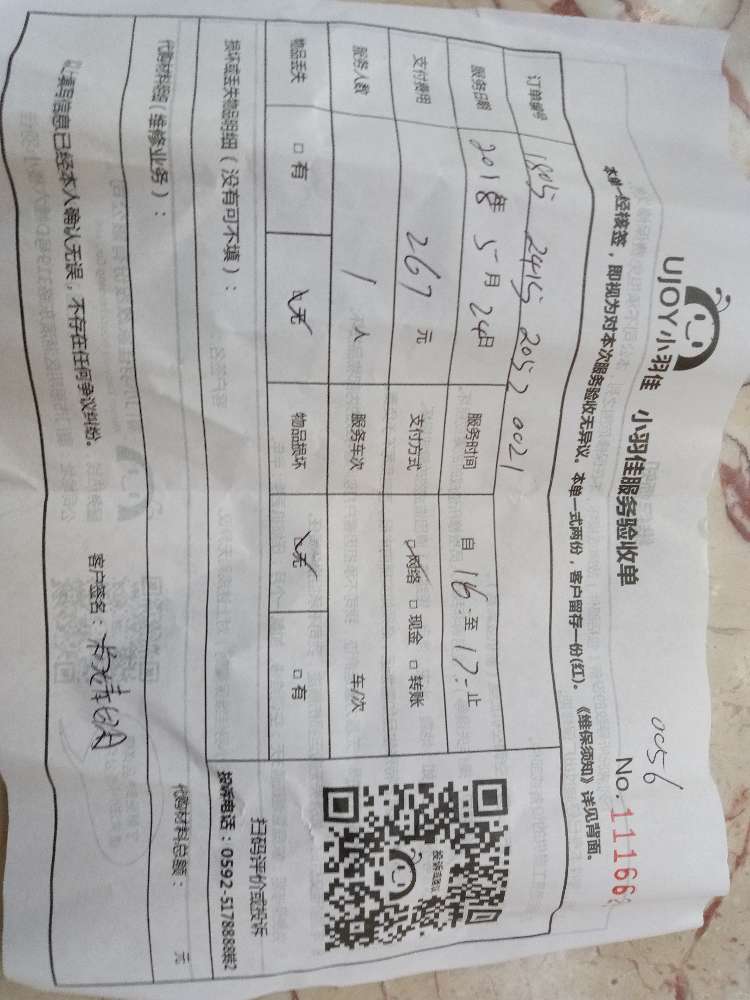 0056
UJOY小羽佳 小羽佳服务验收单 No.11166
本单一经核签，即视为对本次服务验收无异议。本单一式两份，客户留存一份(红)。《维保须知》详见背面。
订单编号 1805 2415 2052 0021
服务日期 2018年5月24日 服务时间 自16:至17:止
支付费用 267元 支付方式 ☑网络 □现金 □转账
服务人数 1人 服务车次 车/次
物品丢失 □有 ☑无 物品损坏 ☑无 □有
投诉或建议
扫码评价或投诉
投诉电话：0592-5178888转2
损坏或丢失物品明细（没有可不填）：
代购材料明细（维修业务）： 代购材料总额： 元
填写信息已经本人确认无误，不存在任何争议纠纷。 客户签名：